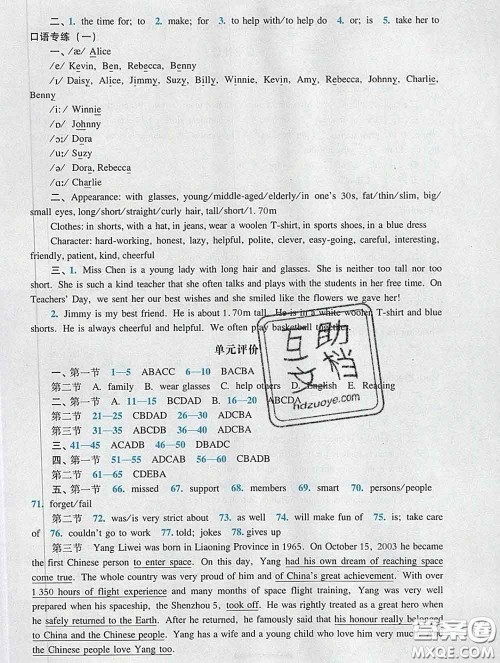 二、1. the time for; to  2. make; for  3. to help with/to help do  4. or; is  5. take her to
口语专练（一）
一、/æ/ Alice
/e/ Kevin, Ben, Rebecca, Benny
/ɪ/ Daisy, Alice, Jimmy, Suzy, Billy, Winnie, Kevin, Amy, Rebecca, Johnny, Charlie,
Benny
/iː/ Winnie
/ɒ/ Johnny
/ɔː/ Dora
/uː/ Suzy
/ə/ Dora, Rebecca
/ɑː/ Charlie
二、Appearance: with glasses, young/middle-aged/elderly/in one's 30s, fat/thin/slim, big/
small eyes, long/short/straight/curly hair, tall/short/1.70m
Clothes: in shorts, with a hat, in jeans, wear a woolen T-shirt, in sports shoes, in a blue dress
Character: hard-working, honest, lazy, helpful, polite, clever, easy-going, careful, interesting,
friendly, patient, kind, cheerful
三、1. Miss Chen is a young lady with long hair and glasses. She is neither too tall nor too
short. She is such a kind teacher that she often talks and plays with the students in her free time. On
Teachers' Day, we sent her our best wishes and she smiled like the flowers we gave her!
2. Jimmy is my best friend. He is about 1.70m tall. He is in a white woolen T-shirt and blue
shorts. He is always cheerful and helpful. We often play basketball together.
单元评价
一、第一节  1—5  ABACC  6—10  BACBA
第二节  A. family  B. wear glasses  C. help others  D. English  E. Reading
二、第一节  A. 11—15  BCDAD  B. 16—20  ABCDA
第二节  21—25  CBDAD  26—30  ADCBA
第三节  31—35  DBACB  36—40  ADCBA
三、41—45  ACADB  46—50  DBADC
四、第一节  51—55  ADCAB  56—60  CBADB
第二节  61—65  CDEBA
五、第一节  66. missed  67. support  68. members  69. smart  70. persons/people
71. forget/fail
第二节  72. was/is very strict about  73. as well  74. will make fun of  75. is; take care
of  76. couldn't go to work  77. told; jokes  78. gives up
第三节  Yang Liwei was born in Liaoning Province in 1965. On October 15, 2003 he became
the first Chinese person to enter space. On this day, Yang had his own dream of reaching space
come true. The whole country was very proud of him and of China's great achievement. With over
1 350 hours of flight experience and many months of space flight training, Yang was very well
prepared when his spaceship, the Shenzhou 5, took off. He was rightly treated as a great hero when
he safely returned to the Earth. After he returned, he famously said that his honour really belonged
to China and the Chinese people. Yang has a wife and a young child who love him very much
the Chinese people love Yang too.
互助
文档
hdzuoye.com
答案圈
MXQE.COM